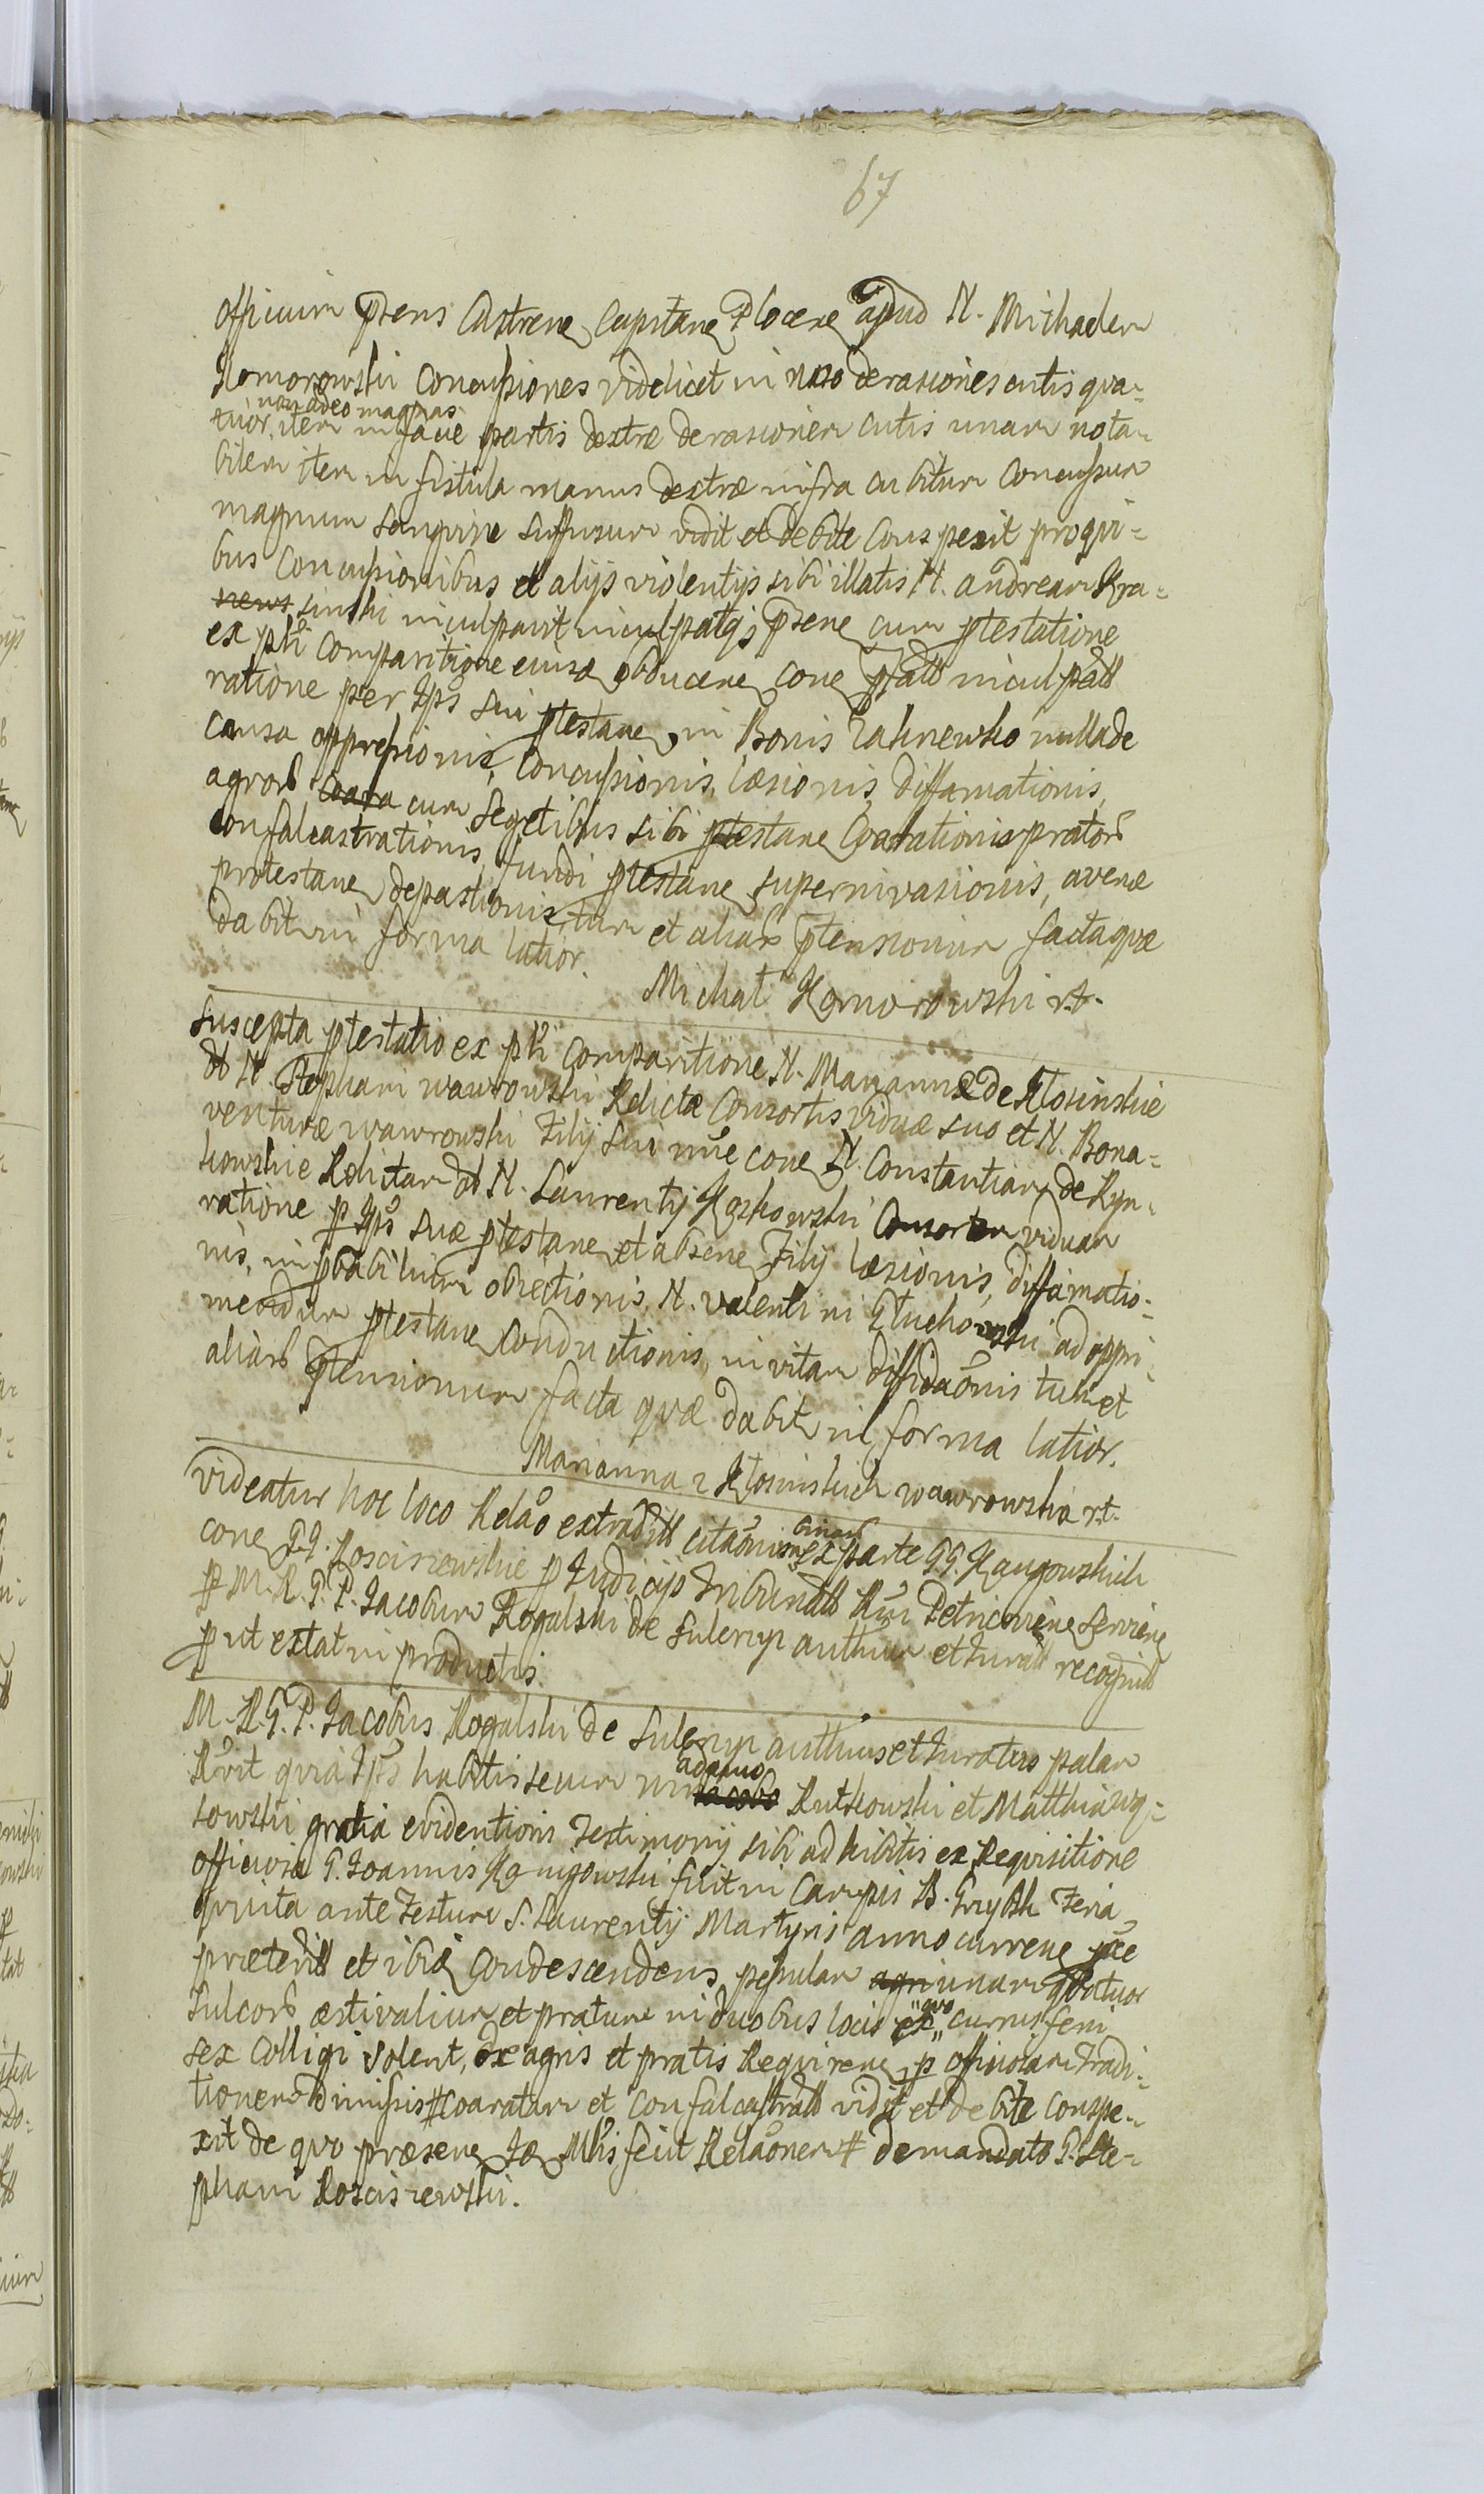 67
officium pzens Castrene Capitane Plocene apud N. Michaelem
Komorowski Concussiones videlicet in naso derasiones cutis qua=
non adeo magnas
tuor, item in facie partis dextræ derasionem cutis unam nota=
bilem item in fistula manus dextræ infra cubitum Concussum
magnum sanguine suffusum vidit et debite Conspexit pro qui=
bus Concussionibus et alijs violentijs sibi illatis N. Andream Kra=
sinski inculpavit inculpatqȝ pzene cum ptestatione
ex pti Comparitione eiusd obducene cone pfatt inculpatt
ratione per Ips sui ptestane, in Bonis nulla de
causa oppressionis, Concussionis, læsionis, diffamationis,
agrorb Coara cum segetibus sibi ptestane Coarationis pratorb
Confalcastrationis, fundi ptestane superinvasionis, avenæ
protestane depastionis tum et aliarb ptensionum facta quæ
dabit in forma latior.
Michał Komorowski rt.
Suscepta ptestatio ex pti Comparitione N. Mariannæ de Kłosinskie
N. Stephani Wawrowski Relictæ Consortis viduæ suo et N. Bona=
venturæ Wawrowski Filij sui nne cone N. Constantiam de Ryn=
kowskie Relictam N. Laurentij Koskowski Consortem viduam
ratione p Ips suæ ptestane et absene Filij læsionis, diffamatio=
nis, inpbabilium obiectionis, N. Valentini Głuchowski ad oppri=
mendum ptestane Conductionis, in vitam diffidaonis tum et
aliarb ptensionum facta quæ dabit in forma latior.
Marianna z Kłosinskich Wawrowska rt.
Videatur hoc loco Relao extraditt citaonis ex parte G.G. Kanigowskich
cone G.G. Roscisrewskie p Iudicijs Tribunatt Rni Petricoviene serviene
p M. R. G. P. Iacobum Rogalski de Sulerzyz authum et Iuratt recognitt
put extat in productis.
M. R. G. P. Iacobus Rogalski de Sulerzyz authus et Iuratus palam
adamo
Rvit quia Ips habitis secum nn Iacobo Rutkowski et Matthia Wą=
sowski gratia evidentioris Testimonij sibi adhibitis ex Requisitione
officiosa G. Ioannis Kanigowski fuit in Campis B. Feria
quinta ante Festum S. Laurentij Martyris anno currene pce
præteritt et ibid Condescendens pezulam agri unam quatuor
Sulcorb æstivalium et pratum in duobus locis ex quo currus feni
sex Colligi solent, de agris et pratis Requirene p officiosam Tradi=
tionem dimissis # Coaratam et Confalcastratt vidit et debite Conspe=
xit de quo præsene Ide Mlis fecit Relaonem # de mandato G. Ste=
phani Roscisrewski.